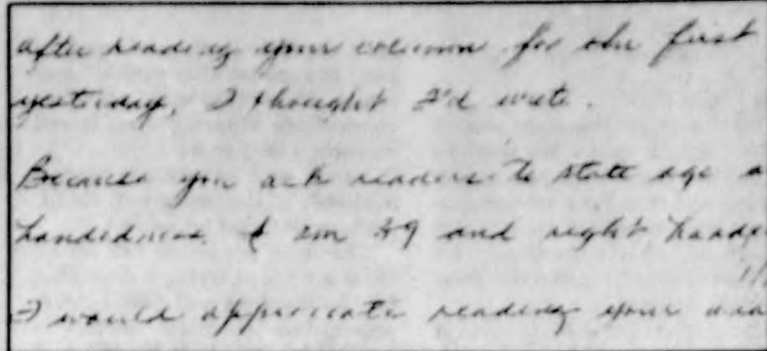 after reading your column for the first
yesterday, I thought I'd write.
Because you ask readers to state age a
handedness, I am 49 and right hande
I would appreciate reading your ana